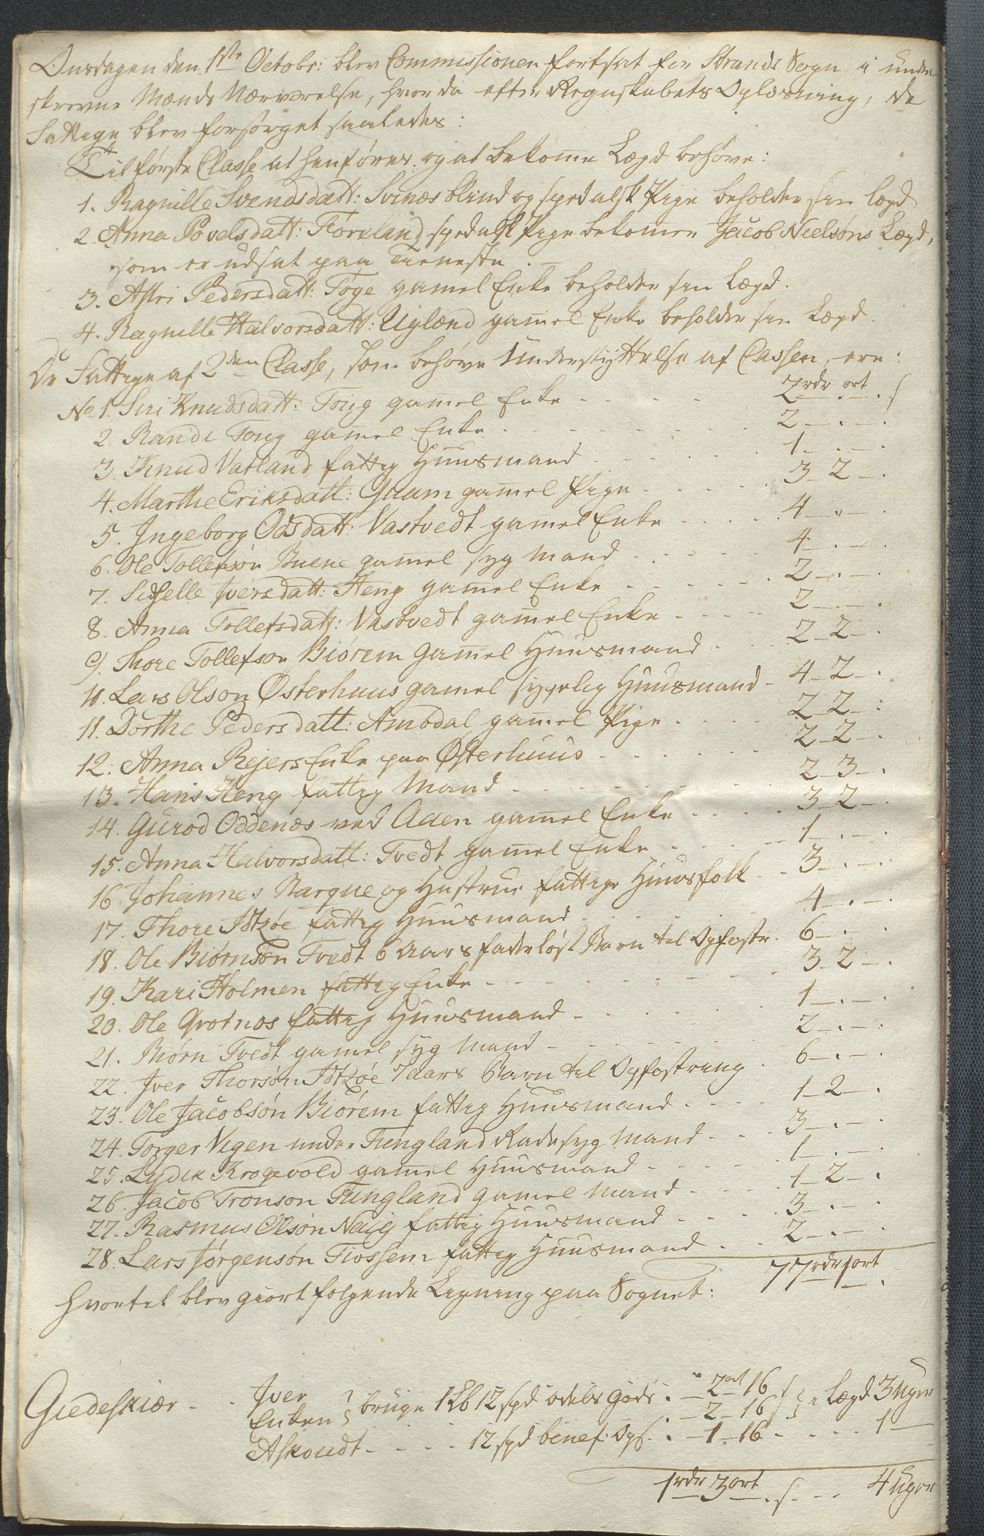 Onsdagen den 1ste Octobr: blev Commissionen fortsat for Strands Sogn i under
skrevne Mænds Nærværelse, hvor da efter Regnskabets Oplæsning, de
Fattige blev forsørget saaledes:
Til første Classe at henføres og at bekomme Lægd behøve:
1. Ragnille Svendsdatt: Svinæs blind og spedalsk Pige beholder sin lægd
2. Anna Povelsdatt: Föreland spedalsk Pige bekommer Jacob Nielsøns Lægd,
som er udsat paa Tieneste
3. Astri Pedersdatt: Toge gamel Enke beholder sin Lægd.
4. Ragnille Halvorsdatt: Ugland gamel Enke beholder sin Lægd.
De Fattige af 2den Classe, som behøve Understyttelse af Cassen, ere:
No 1. Siri Knudsdatt: Tong gamel Enke - - - 2 rdr . ort . s
2. Rande Tong gamel Enke - - - 2 - . - .
3. Knud Vatland fattig Huusmand - - - 1 - . - .
4. Marthe Eriksdatt: Qvam gamel Pige - - - 3 - 2 - .
5. Ingeborg Odsdatt: Vastvedt gamel Enke - - - 4 - . - .
6. Ole Tollefsøn Buene gamel syg Mand - - - 4 - . - .
7. Sidselle Iversdatt: Heng gamel Enke - - - 2 - . - .
8. Anna Tollefsdatt: Vastvedt gamel Enke - - - 2 - . - .
9. Thore Tollefsøn Biörem gamel Huusmand - - - 2 - 2 - .
10. Lars Olson Østerhuus gamel sygelig Huusmand - 4 - 2 - .
11. Dorthe Pedersdatt: Ambdal gamel Pige - - - 2 - 2 - .
12. Anna Rejers Enke paa Østerhuus - - - 2 - 2 - .
13. Hans Heng fattig Mand - - - 2 - 3 - .
14. Guroe Oddenæs ved Aaen gamel Enke - - - 3 - 2 - .
15. Anna Halvorsdatt: Tvedt gamel Enke - - - 1 - . - .
16. Johannes Barque og Hustrue fattige Huusfolk - - 3 - . - .
17. Thore Idsøe fattig Huusmand - - - 4 - . - .
18. Ole Biörnsøn Tvedt 6 Aars faderløst Barn til Opfostr. 6 - . - .
19. Kari Holmen fattig Enke - - - 3 - 2 - .
20. Ole Grotnæs fattig Huusmand - - - 1 - . - .
21. Biörn Tvedt gamel syg Mand - - - 2 - . - .
22. Iver Thorsøn Idsøe 7 Aars Barn til Opfostring - 6 - . - .
23. Ole Jacobsøn Biörem fattig Huusmand - - - 1 - 2 - .
24. Torger Vigen under Fungland Radesyg Mand - - - 3 - . - .
25. Lydik Krogevold gamel Huusmand - - - 1 - . - .
26. Jacob Tronson Fungland gamel Mand - - - 1 - 2 - .
27. Rasmus Olsøn Naig fattig Huusmand - - - 3 - . - .
28. Lars Jørgensøn Tiossem fattig Huusmand - - - 2 - . - .
77 rdr 1 ort .
Hvortil blev giort følgende Ligning paa Sognet:
Giedeskiær - - Iver } bruge 1 Lb 12 spd odels gods: - 2 ort 16 s } i lægd 3 uger
Enken } - 2 - 16 s
Askvudt - - - 12 spd benef: Gds: - 1 - 16 - - - 1 -
1 rdr 3 ort . s - - 4 Uger